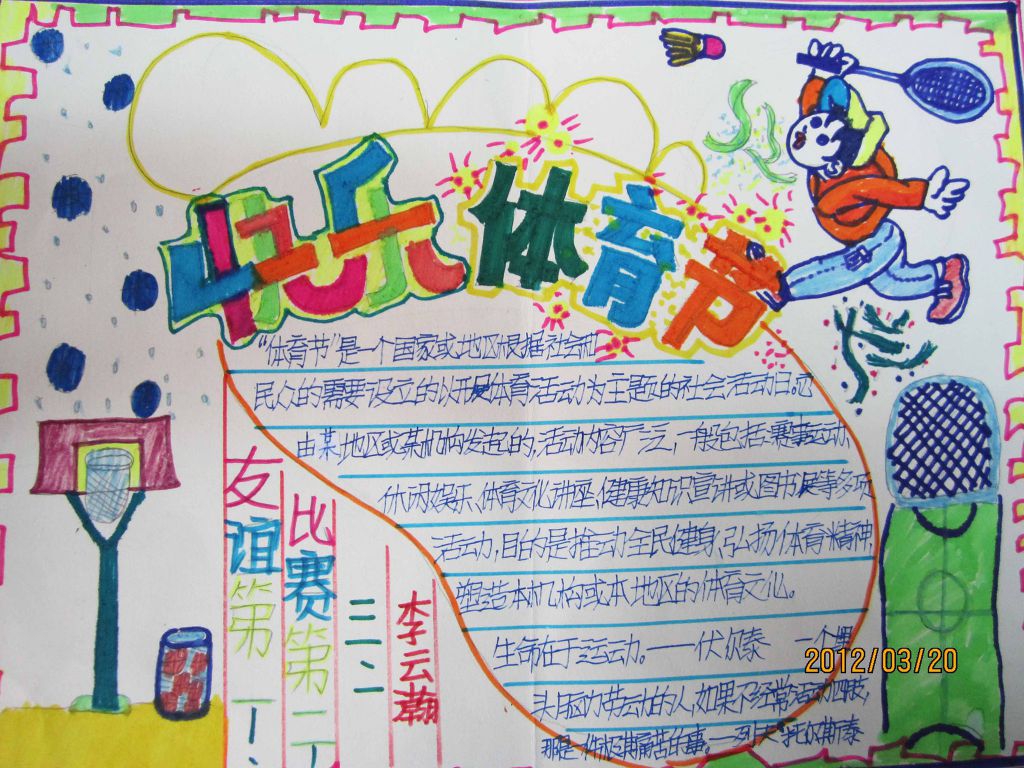 快乐体育节
“体育节”是一个国家或地区根据社会和
民众的需要设立的以开展体育活动为主题的社会活动日。
由某地区或某机构发起的,活动内容广泛,一般包括:赛事运动、
休闲娱乐、体育文化讲座、健康知识宣讲或图书展等多项
活动,目的是推动全民健身、弘扬体育精神,
塑造本机构或本地区的体育文化。
生命在于运动。——伏尔泰 一个
头脑劳动的人,如果不经常活动四肢,
那是一件极其痛苦的事。——列夫·托尔斯泰
友谊第一
比赛第二
三二、一
李云瀚
2012/03/20